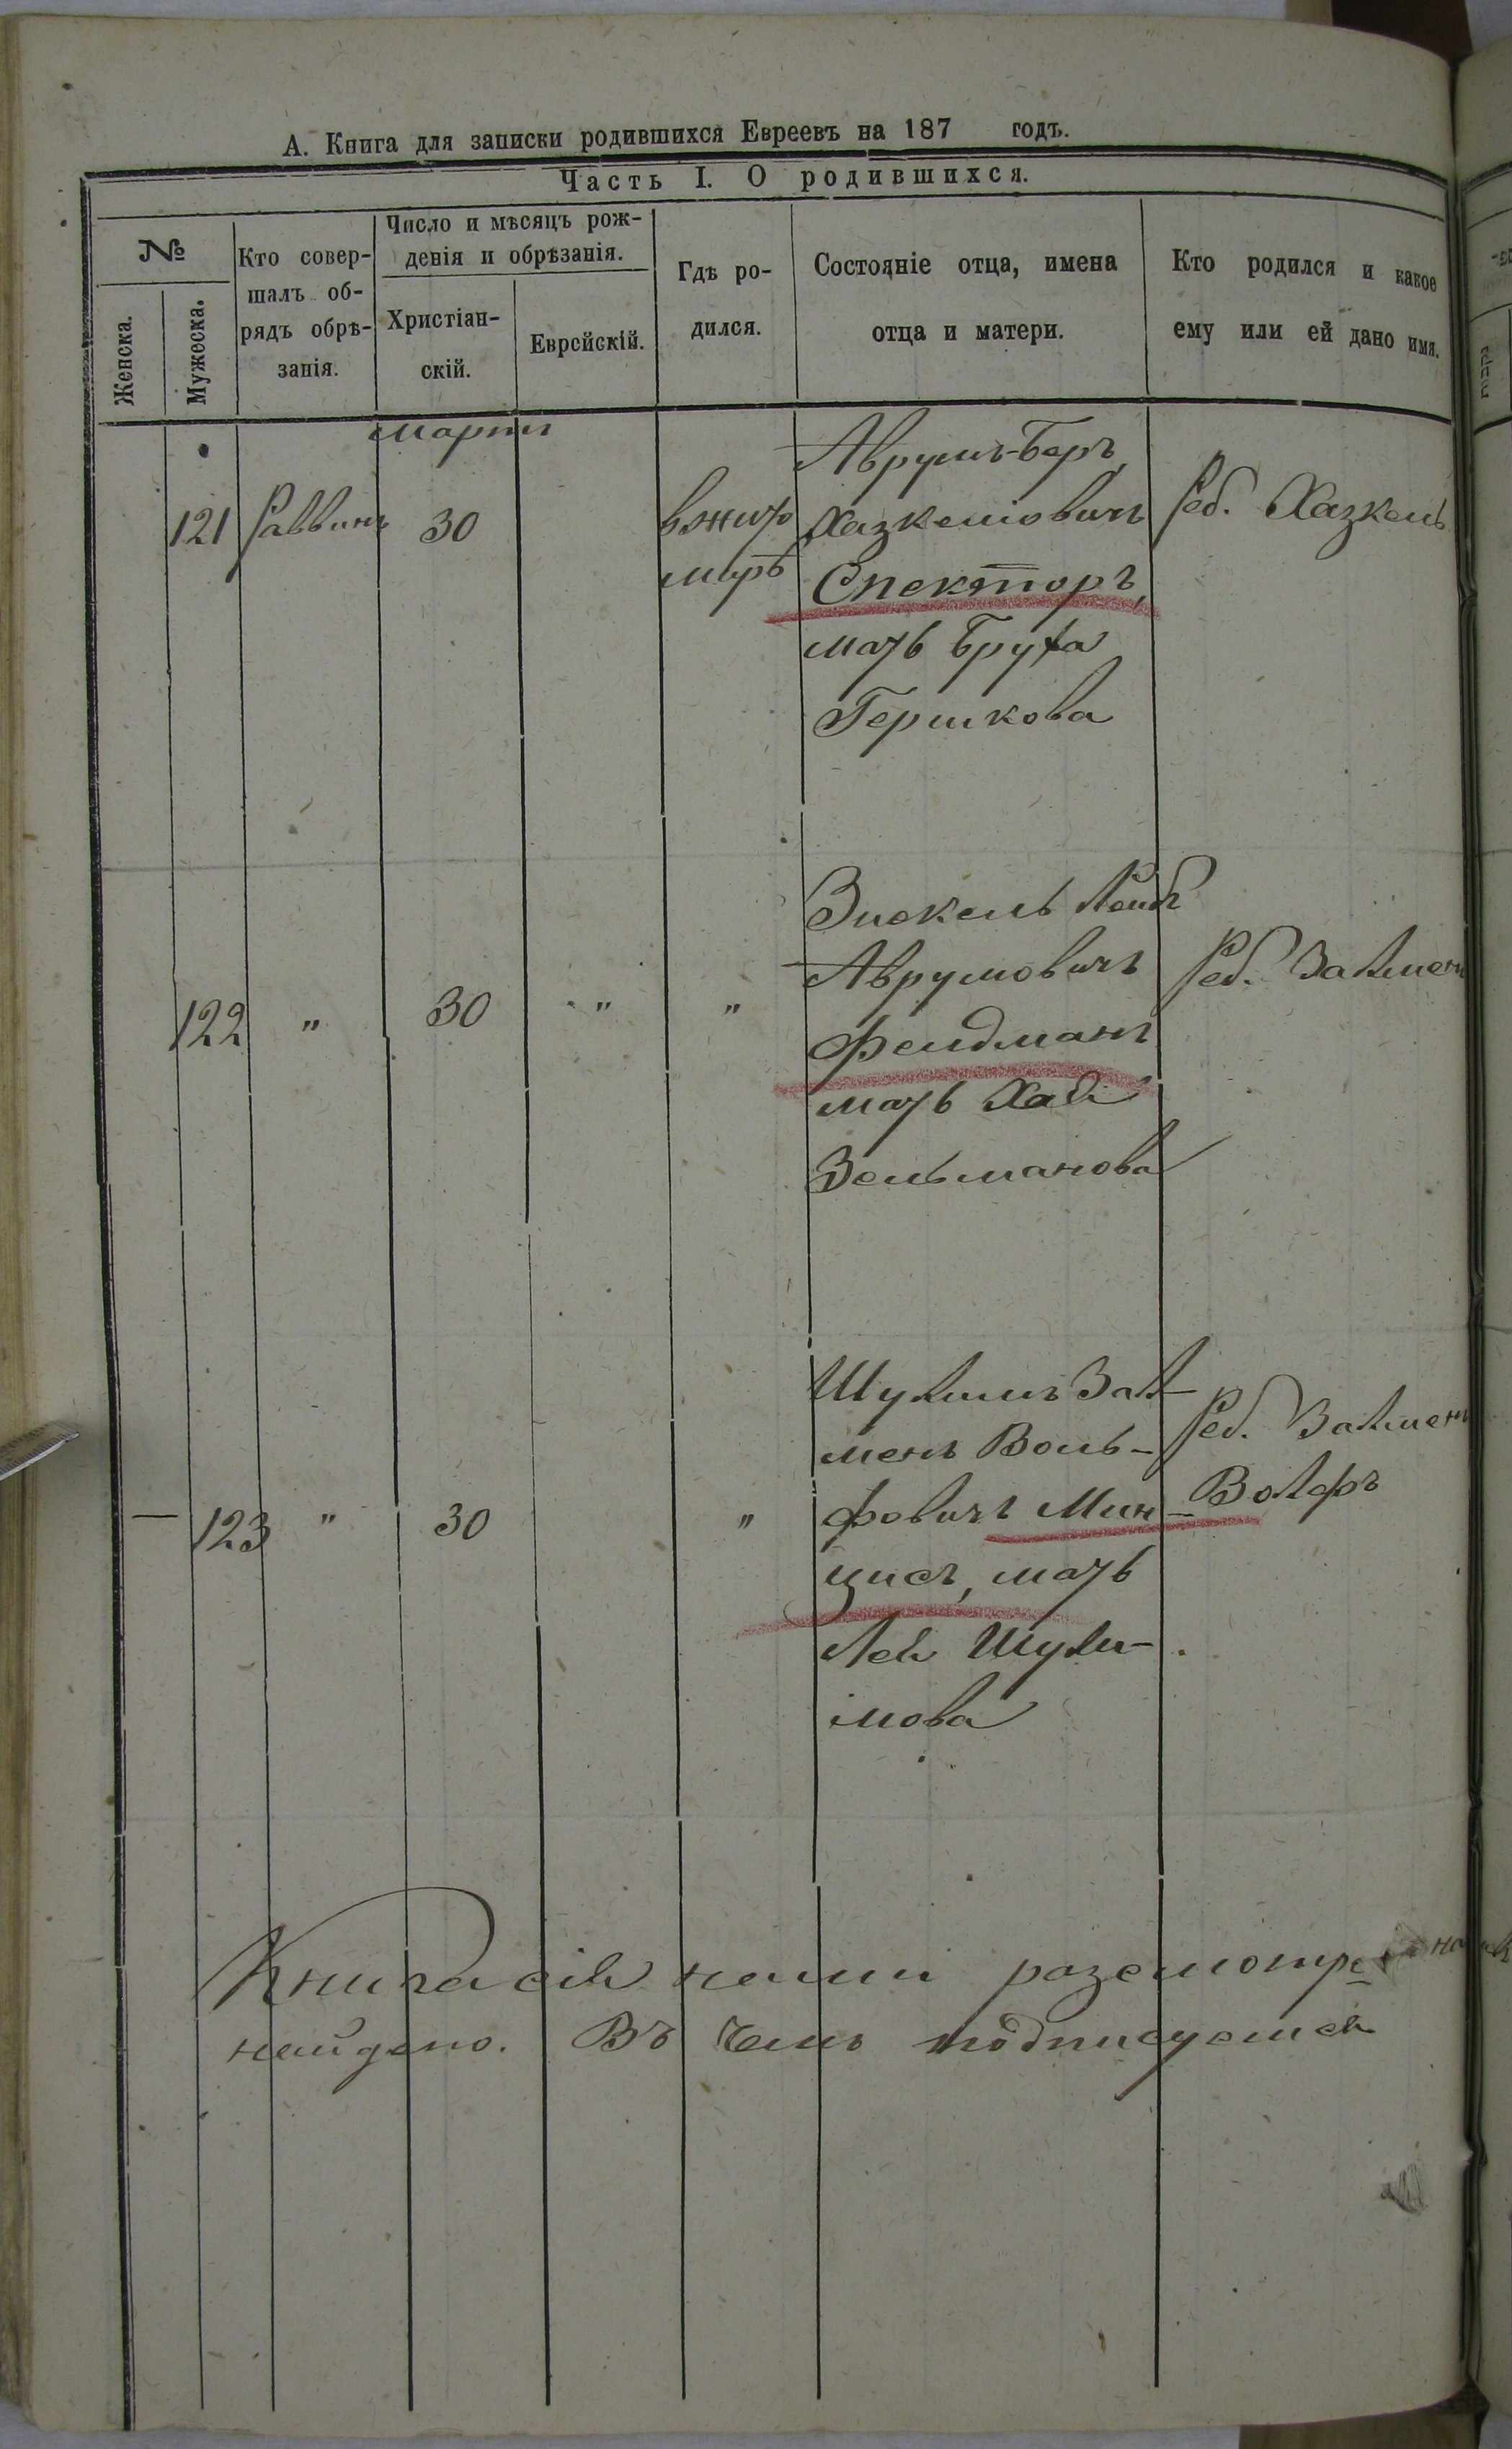 А. Книга для записки родившихся Евреевъ на 187 годъ.
Часть I. О родившихся.
№
Женска.
Мужеска.
Кто совер-
шалъ об-
рядъ обрѣ-
занія.
Число и мѣсяцъ рож-
денія и обрѣзанія.
Христіан-
скій.
Еврейскій.
Гдѣ ро-
дился.
Состояніе отца, имена
отца и матери.
Кто родился и какое
ему или ей дано имя.
марта
121 Раввинъ 30
вжито
мирѣ
Аврумъ-Беръ
Хазкелiовичъ
Спекторъ,
мать Бруха
Гершкова
Реб. Хазкель
122 " 30 " "
Зискель Лейбъ
Аврумовичъ
Фельдманъ
мать Хая
Зельманова
Реб. Залменъ
— 123 " 30 "
Шулимъ Зал-
менъ Воль-
фовичъ Мин-
цисъ, мать
Лея Шули-
мова
Реб. Залменъ
Волфъ
Книга сія нами разсмотрена
найдено. Въ чемъ подписуемся